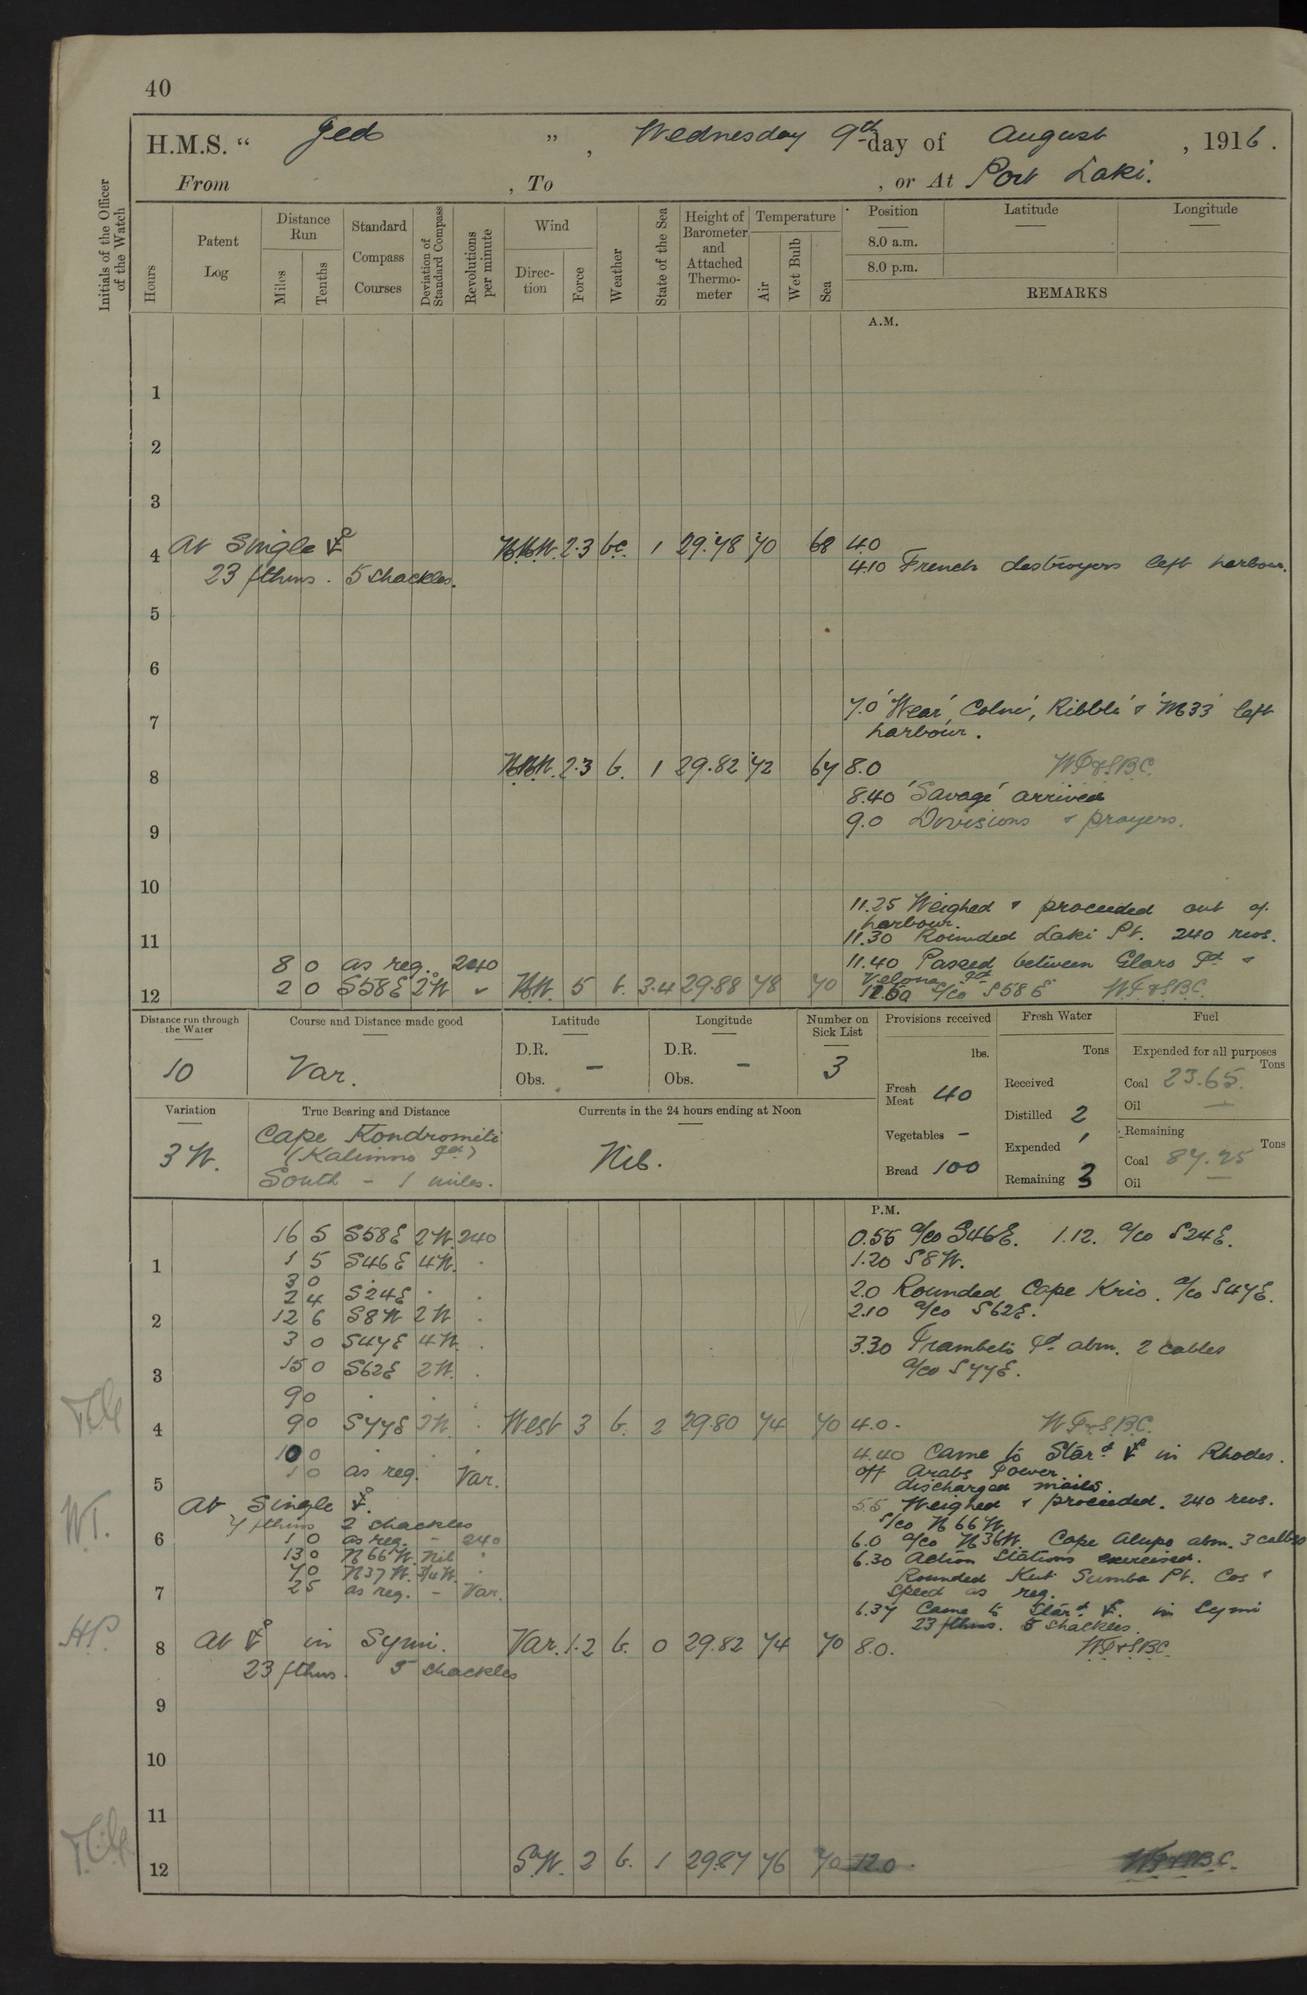 40
H.M.S. “ Jed ”, Wednesday 9th day of August, 1916.
From , To , or At Port Laki.
Initials of the Officer of the Watch
Hours
Patent Log
Distance Run
Miles
Tenths
Standard Compass Courses
Deviation of Standard Compass
Revolutions per minute
Wind
Direction
Force
Weather
State of the Sea
Height of Barometer and Attached Thermometer
Temperature
Air
Wet Bulb
Sea
Position
Latitude
Longitude
8.0 a.m.
8.0 p.m.
REMARKS
A.M.
1
2
3
4 At Single N.N.W. 2.3 b.c. 1 29.78 70 68 4.0
23 fthms. 5 shackles. 4.10 French destroyers left harbour.
5
6
7 7.0 'Wear', 'Colne', 'Ribble' & 'M33' left
harbour.
8 N.N.W. 2.3 b. 1 29.82 72 67 8.0
8.40 'Savage' arrived
9 9.0 Divisions & prayers.
10
11.25 Weighed & proceeded out of
harbour.
11 11.30 Rounded Laki Pt. 240 revs.
8 0 as reg. 240 11.40 Passed between Glaro Id &
Velona Id
12 2 0 S58E 2°W N.W. 5 b. 3.4 29.88 78 70 a/co S58E
Distance run through the Water
10
Course and Distance made good
Var.
Latitude
D.R. –
Obs.
Longitude
D.R. –
Obs.
Number on Sick List
3
Provisions received
lbs.
Fresh Meat 40
Vegetables –
Bread 100
Fresh Water
Tons
Received
Distilled 2
Expended 1
Remaining 3
Fuel
Expended for all purposes
Tons
Coal 23.65.
Oil –
Remaining
Tons
Coal 87.25
Oil –
Variation
3 W.
True Bearing and Distance
Cape Kondromiti
(Kalimno Id)
South – 1 miles.
Currents in the 24 hours ending at Noon
Nil.
P.M.
16 5 S58E 2W. 240 0.55 a/co S46E. 1.12. a/co S24E.
1 1 5 S46E 4W. 1.20 S8W.
3 0
2 4 S24E 2.0 Rounded Cape Krio. a/co S47E.
2 12 6 S8W 2W 2.10 a/co S62E.
3 0 S47E 4W. 3.30 Id abm. 2 cables
3 15 0 S62E 2W. a/co S77E.
9 0
4 9 0 S77E 2W. West 3 b. 2 29.80 74 70 4.0.
10 0 4.40 Came to Starbd in Rhodes.
5 1 0 as reg. Var. off Arabs Tower.
discharged mails.
At Single 5.5 Weighed & proceeded. 240 revs.
7 fthms 2 shackles s/co N66W
6 1 0 as reg. – 240 6.0 a/co N36W. Cape Alupo abm. 3 cables
13 0 N66W. Nil 6.30 Action Stations exercised.
7 0 N37W. 3/4W. Rounded Kut Sumba Pt. Cos &
7 2 5 as reg. – Var. Speed as reg.
6.37 Came to Starbd in Symi
23 fthms. 5 shackles.
8 At in Symi. Var. 1.2 b. 0 29.82 74 70 8.0.
23 fthms. 5 shackles
9
10
11
12 S.W. 2 b. 1 29.87 76 70 12.0
W.T.
H.P.